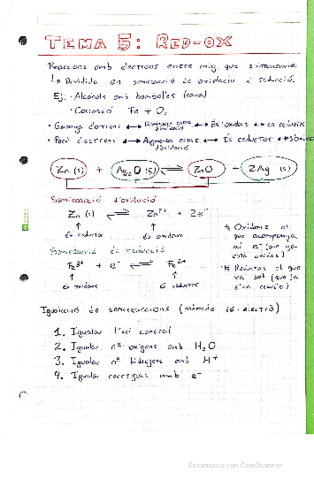 TEMA 5: RED-OX
Reaccions amb electrons entre mig que s'intercanvien
↳ Dividida en semireacció de oxidació i reducció.
Ej: - Alcohols amb bombolles (cava)
· Corrosió Fe + O₂
· Guanya electrons ↔ Disminueix nombre oxidació ↔ És oxidant ↔ es redueix
· Perd electrons ↔ Augmenta nombre oxidació ↔ És reductor ↔ s'oxida
Zn (s) + Ag₂O (s) ⇌ ZnO + 2Ag (s)
Semireacció d'oxidació
Zn (s) ⇌ Zn²⁺ + 2e⁻
és reductor és oxidant
Semireacció de reducció
Fe³⁺ + e⁻ ⇌ Fe²⁺
és oxidant és reductor
* Oxidant el que acompanya al e⁻ (que ja està oxidat)
* Reductor el que va sol (que ja s'ha reduït)
Igualació de semireaccions (mètode ió-electró)
1. Igualar l'ió central
2. Igualar nº oxigens amb H₂O
3. Igualar nº hidrogens amb H⁺
4. Igualar càrregues amb e⁻
Escaneado con CamScanner